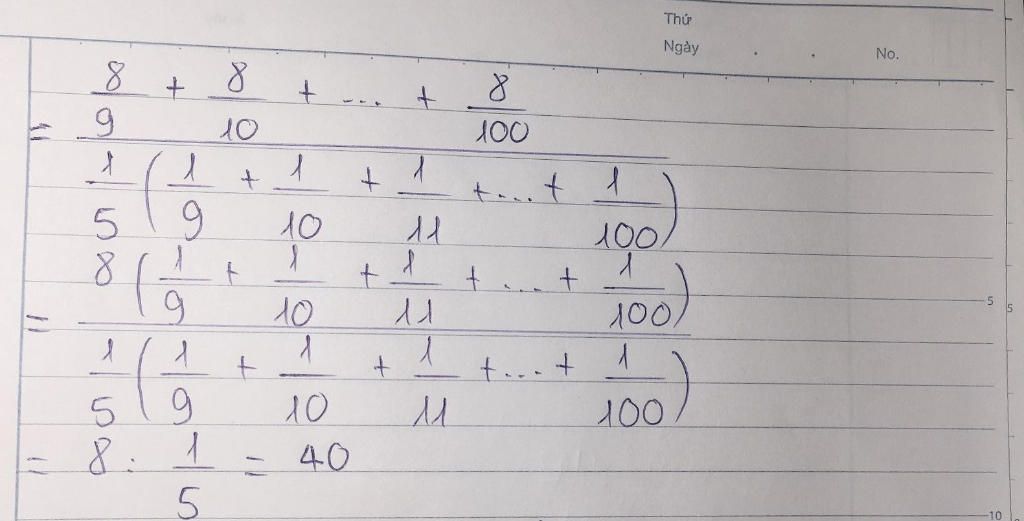 Thứ
Ngày . . No.
8/9 + 8/10 + ... + 8/100
=
1/5 (1/9 + 1/10 + 1/11 + ... + 1/100)
8 (1/9 + 1/10 + 1/11 + ... + 1/100)
=
1/5 (1/9 + 1/10 + 1/11 + ... + 1/100)
= 8 : 1/5 = 40
5
5
10